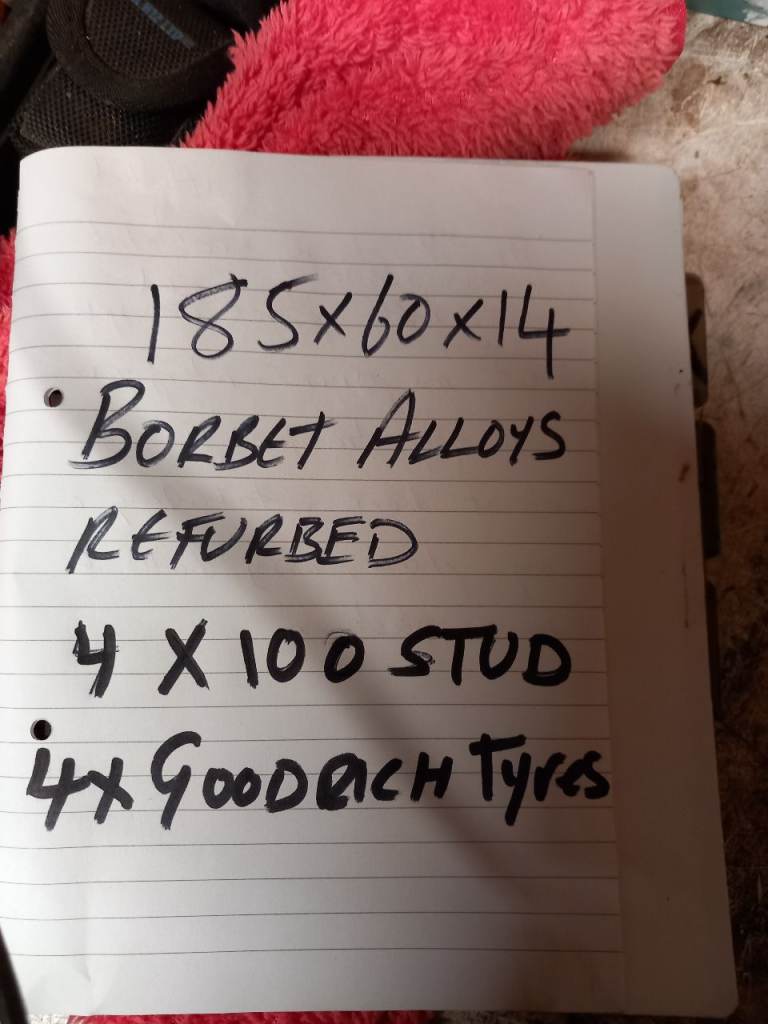 185x60x14
BORBET ALLOYS
REFURBED
4 X 100 STUD
4x GOODRICH Tyres